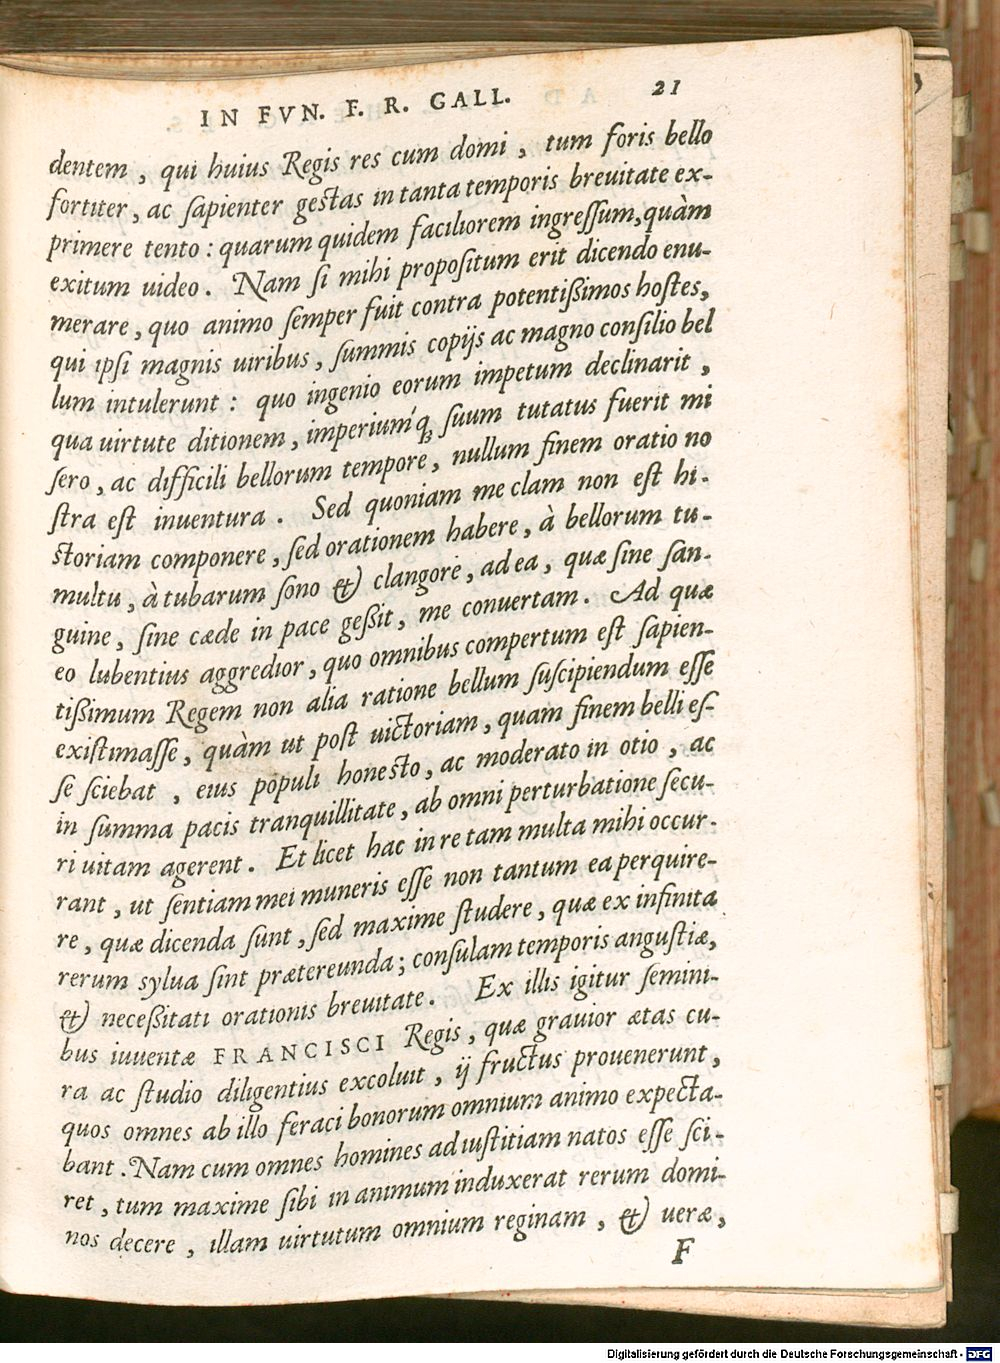 IN FVN. F. R. GALL. 21
dentem, qui huius Regis res cum domi, tum foris bello
fortiter, ac sapienter gestas in tanta temporis breuitate ex-
primere tento: quarum quidem faciliorem ingressum, quàm
exitum uideo. Nam si mihi propositum erit dicendo enu-
merare, quo animo semper fuit contra potentißimos hostes,
qui ipsi magnis uiribus, summis copijs ac magno consilio bel
lum intulerunt: quo ingenio eorum impetum declinarit,
qua uirtute ditionem, imperiumq́ꝫ suum tutatus fuerit mi
sero, ac difficili bellorum tempore, nullum finem oratio no
stra est inuentura. Sed quoniam me clam non est hi-
storiam componere, sed orationem habere, à bellorum tu-
multu, à tubarum sono & clangore, ad ea, quæ sine san-
guine, sine cæde in pace geßit, me conuertam. Ad quæ
eo lubentius aggredior, quo omnibus compertum est sapien-
tißimum Regem non alia ratione bellum suscipiendum esse
existimasse, quàm ut post uictoriam, quam finem belli es-
se sciebat, eius populi honesto, ac moderato in otio, ac
in summa pacis tranquillitate, ab omni perturbatione secu-
ri uitam agerent. Et licet hac in re tam multa mihi occur-
rant, ut sentiam mei muneris esse non tantum ea perquire-
re, quæ dicenda sunt, sed maxime studere, quæ ex infinita
rerum sylua sint prætereunda; consulam temporis angustiæ,
& neceßitati orationis breuitate. Ex illis igitur semini-
bus iuuentæ FRANCISCI Regis, quæ grauior ætas cu-
ra ac studio diligentius excoluit, ij fructus prouenerunt,
quos omnes ab illo feraci bonorum omnium animo expecta-
bant. Nam cum omnes homines ad iustitiam natos esse sci-
ret, tum maxime sibi in animum induxerat rerum domi-
nos decere, illam uirtutum omnium reginam, & ueræ,
F
Digitalisierung gefördert durch die Deutsche Forschungsgemeinschaft - DFG